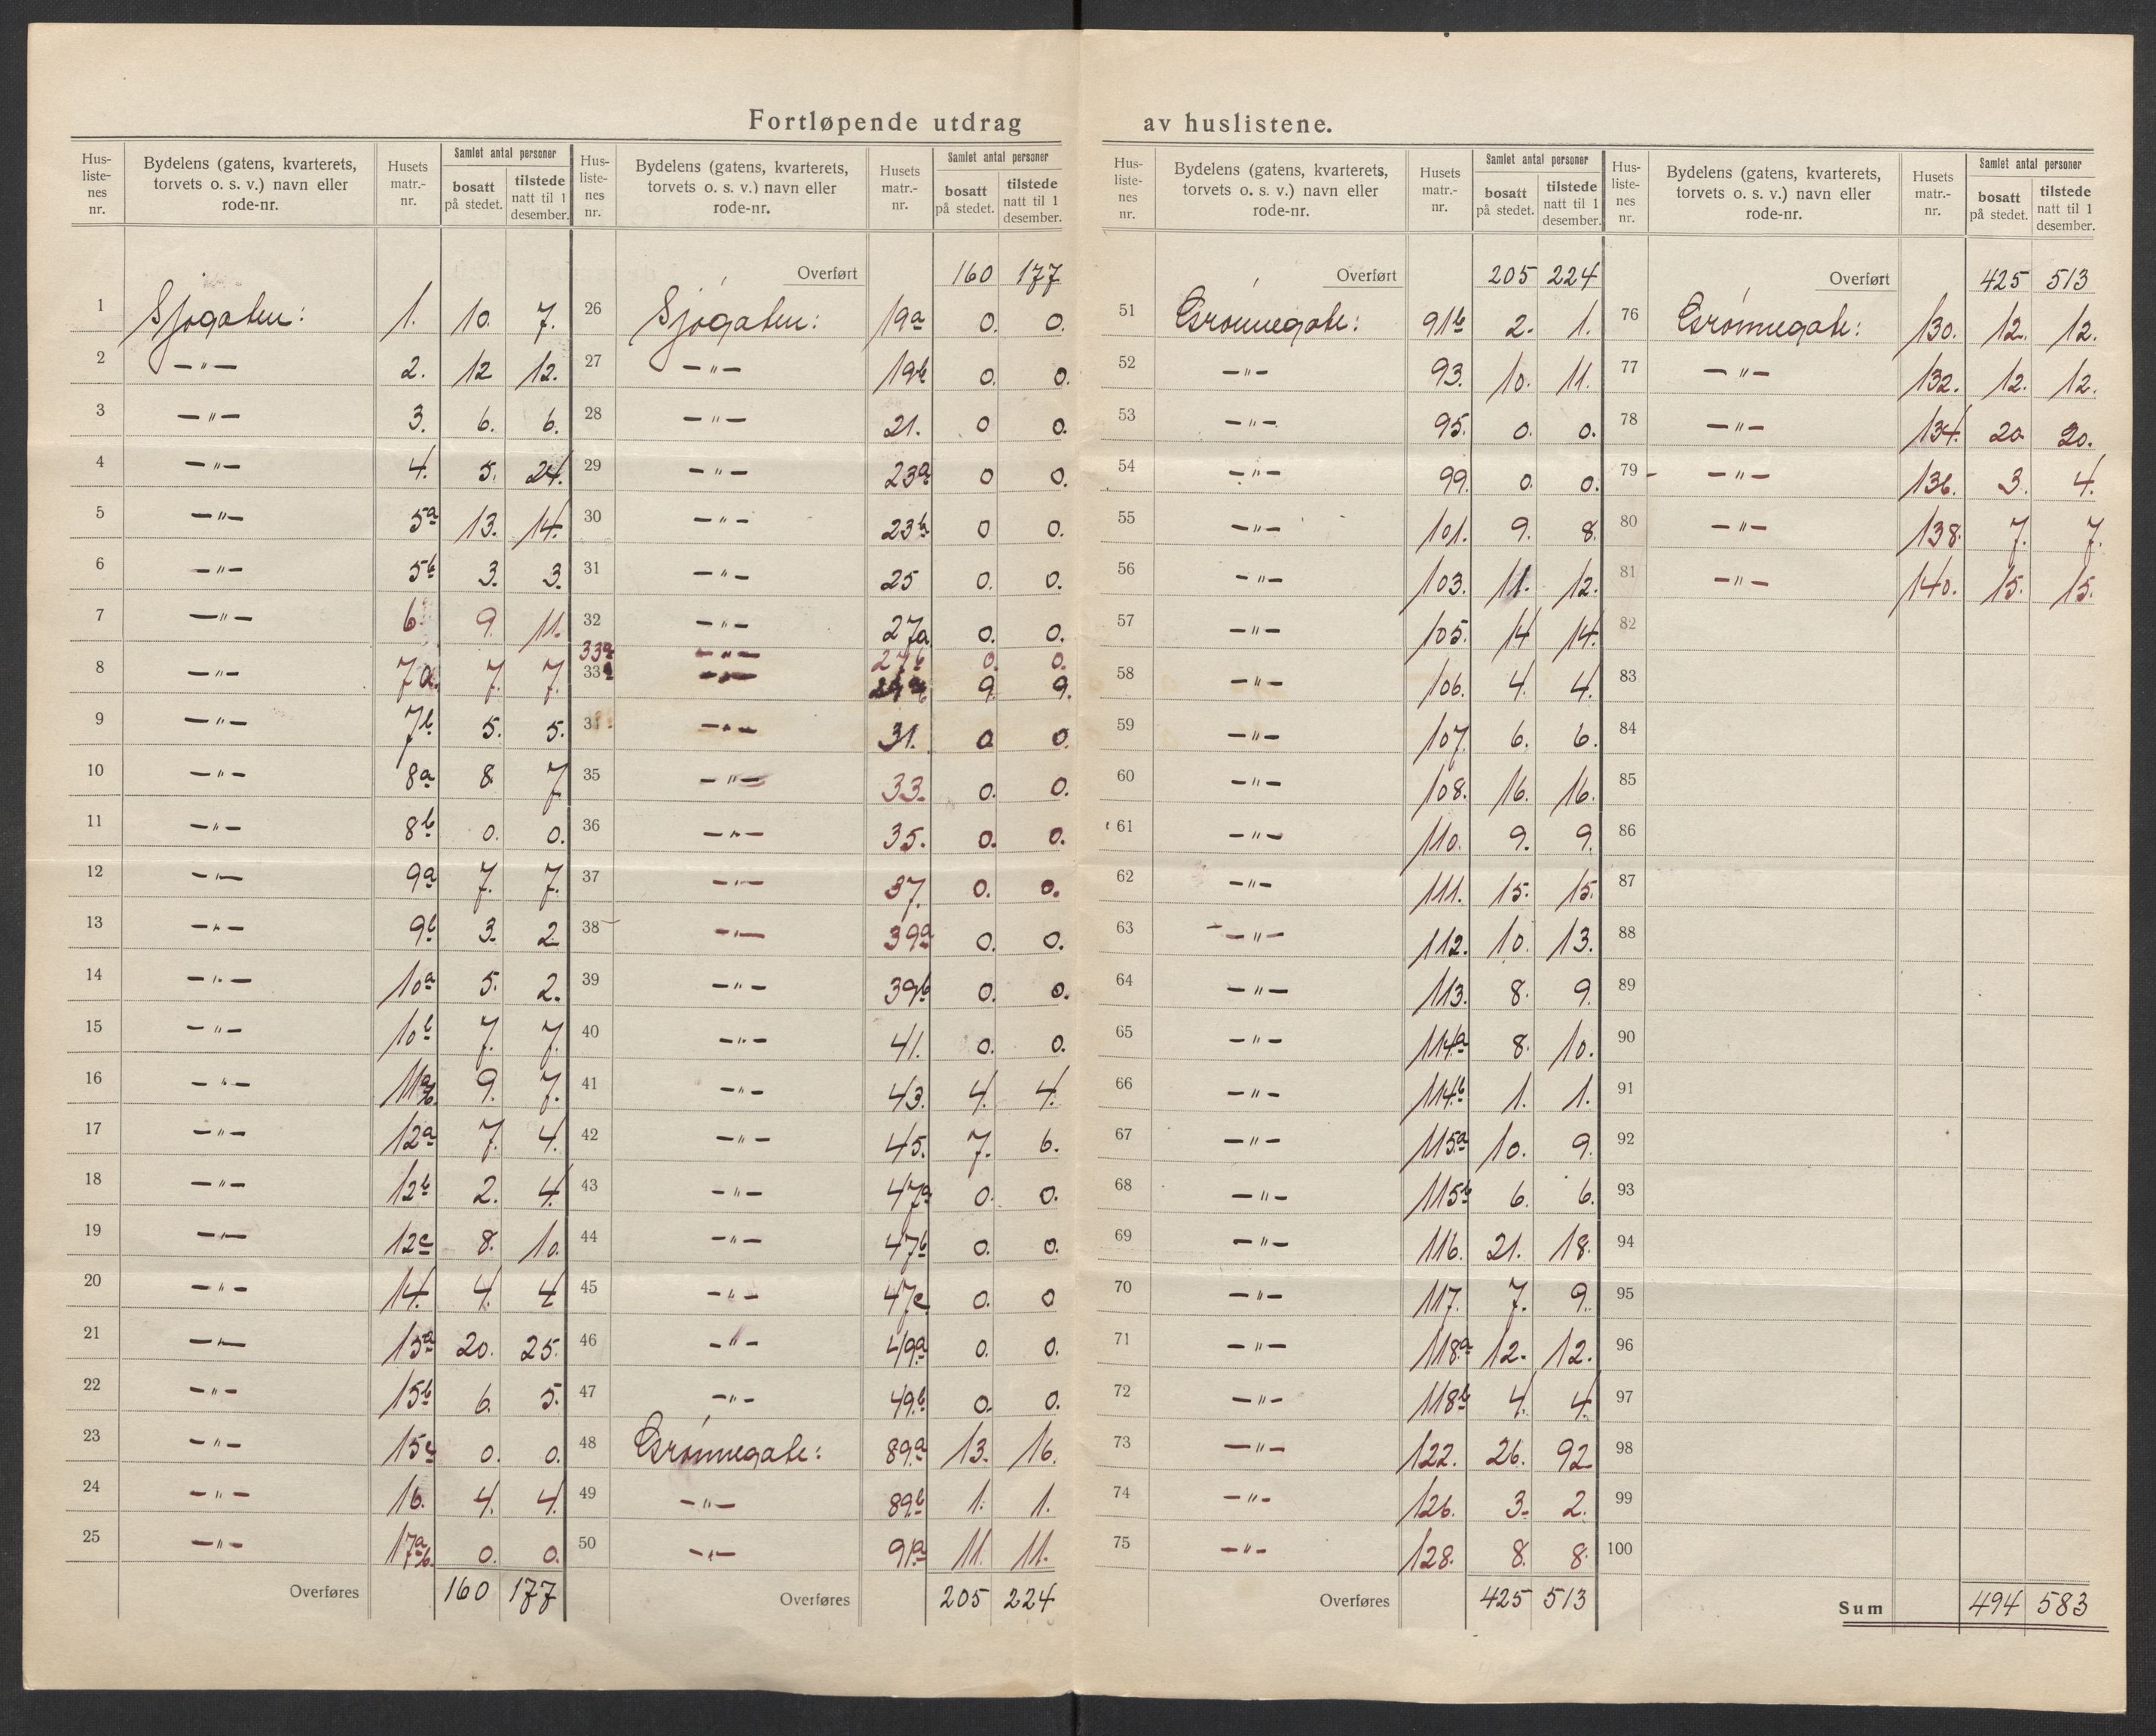 Fortløpende utdrag av huslistene.
Hus-listenes nr. | Bydelens (gatens, kvarterets, torvets o. s. v.) navn eller rode-nr. | Husets matr.-nr. | Samlet antal personer bosatt på stedet. | tilstede natt til 1 desember.
1 Sjøgaten: 1. 10. 7.
2 —"— 2. 12 12.
3 —"— 3. 6. 6.
4 —"— 4. 5. 24.
5 —"— 5a 13. 14.
6 —"— 5b 3. 3.
7 —"— 6. 9. 11.
8 —"— 7a. 7. 7.
9 —"— 7b 5. 5.
10 —"— 8a 8 7
11 —"— 8b 0. 0.
12 —"— 9a 7. 7.
13 —"— 9b 3. 2
14 —"— 10a 5. 2.
15 —"— 10b 7. 7.
16 —"— 11a/b. 9. 7.
17 —"— 12a 7. 4.
18 —"— 12b 2. 4.
19 —"— 12c 8. 10.
20 —"— 14. 4. 4
21 —"— 15a 20. 25.
22 —"— 15b 6. 5.
23 —"— 15c 0. 0.
24 —"— 16. 4. 4.
25 —"— 17a/b. 0. 0.
Overføres 160 177
Hus-listenes nr. | Bydelens (gatens, kvarterets, torvets o. s. v.) navn eller rode-nr. | Husets matr.-nr. | Samlet antal personer bosatt på stedet. | tilstede natt til 1 desember.
Overført 160 177
26 Sjøgaten: 19a 0. 0.
27 —"— 19b 0. 0.
28 —"— 21. 0 0.
29 —"— 23a 0 0.
30 —"— 23b 0 0.
31 —"— 25 0. 0.
32 —"— 27a 0. 0.
33a —"— 27b 0. 0.
33 —"— 9. 9.
34 —"— 31. 0 0.
35 —"— 33. 0. 0.
36 —"— 35. 0. 0.
37 —"— 37. 0. 0.
38 —"— 39a 0. 0.
39 —"— 39b 0. 0.
40 —"— 41. 0. 0.
41 —"— 43. 4. 4.
42 —"— 45. 7. 6.
43 —"— 47a 0. 0.
44 —"— 47b 0. 0.
45 —"— 47c 0. 0
46 —"— 49a 0. 0.
47 —"— 49b 0. 0.
48 Grønnegate: 89a 13. 16.
49 —"— 89b 1. 1.
50 —"— 91a 11. 11.
Overføres 205 224
Hus-listenes nr. | Bydelens (gatens, kvarterets, torvets o. s. v.) navn eller rode-nr. | Husets matr.-nr. | Samlet antal personer bosatt på stedet. | tilstede natt til 1 desember.
Overført 205 224
51 Grønnegate: 91b 2. 1.
52 —"— 93. 10. 11.
53 —"— 95. 0. 0.
54 —"— 99. 0. 0.
55 —"— 101. 9. 8.
56 —"— 103. 11. 12.
57 —"— 105. 14 14.
58 —"— 106. 4. 4.
59 —"— 107. 6. 6.
60 —"— 108. 16. 16.
61 —"— 110. 9. 9.
62 —"— 111. 15. 15.
63 —"— 112. 10. 13.
64 —"— 113. 8. 9.
65 —"— 114a 8. 10.
66 —"— 114b 1. 1.
67 —"— 115a 10. 9.
68 —"— 115b 6. 6.
69 —"— 116. 21. 18.
70 —"— 117. 7. 9.
71 —"— 118a 12. 12.
72 —"— 118b 4. 4.
73 —"— 122. 26. 92
74 —"— 126. 3. 2.
75 —"— 128. 8. 8.
Overføres 425 513
Hus-listenes nr. | Bydelens (gatens, kvarterets, torvets o. s. v.) navn eller rode-nr. | Husets matr.-nr. | Samlet antal personer bosatt på stedet. | tilstede natt til 1 desember.
Overført 425 513
76 Grønnegate: 130. 12. 12.
77 —"— 132. 12. 12.
78 —"— 134. 20 20.
79 —"— 136. 3. 4.
80 —"— 138. 7. 7.
81 —"— 140. 15. 15.
82
83
84
85
86
87
88
89
90
91
92
93
94
95
96
97
98
99
100
Sum 494 583